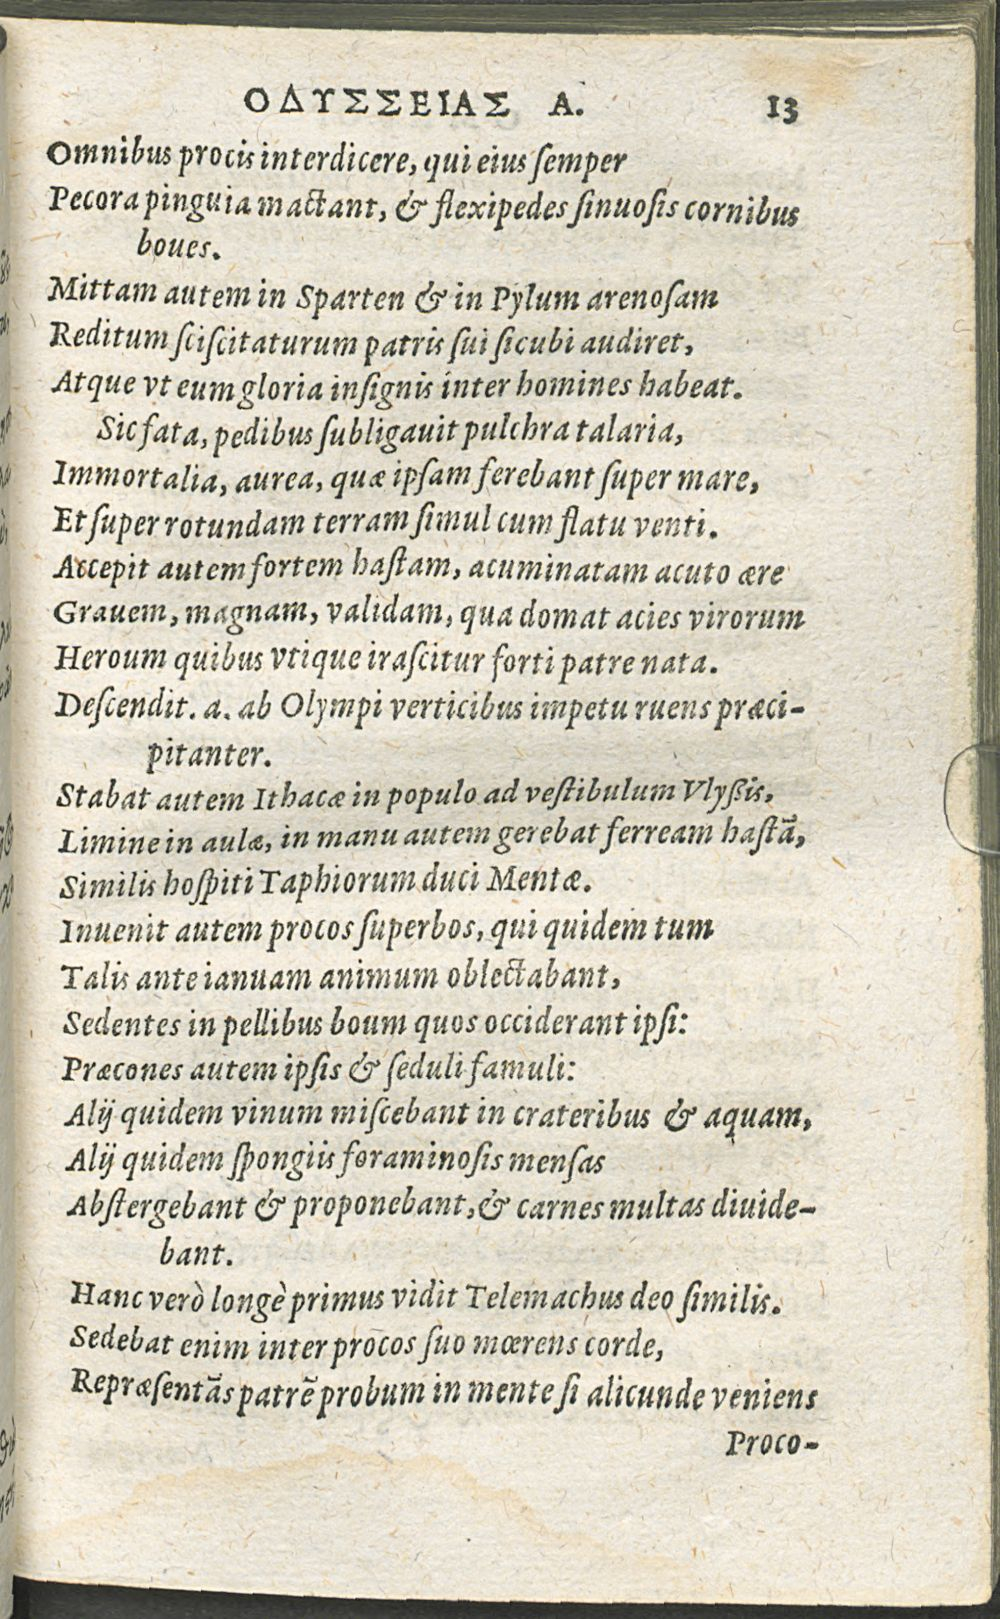 ΟΔΥΣΣΕΙΑΣ Α. 13
Omnibus procis interdicere, qui eius ſemper
Pecora pinguia mactant, & flexipedes ſinuoſis cornibus
boues.
Mittam autem in Sparten & in Pylum arenoſam
Reditum ſciſcitaturum patris ſui ſicubi audiret,
Atque vt eum gloria inſignis inter homines habeat.
Sic fata, pedibus ſubligauit pulchra talaria,
Immortalia, aurea, quæ ipſam ferebant ſuper mare,
Et ſuper rotundam terram ſimul cum flatu venti.
Accepit autem fortem haſtam, acuminatam acuto ære
Grauem, magnam, validam, qua domat acies virorum
Heroum quibus vtique iraſcitur forti patre nata.
Deſcendit. a. ab Olympi verticibus impetu ruens præci-
pitanter.
Stabat autem Ithacæ in populo ad veſtibulum Vlyßis,
Limine in aulæ, in manu autem gerebat ferream haſtā,
Similis hoſpiti Taphiorum duci Mentæ.
Inuenit autem procos ſuperbos, qui quidem tum
Talis ante ianuam animum oblectabant,
Sedentes in pellibus boum quos occiderant ipſi:
Præcones autem ipſis & ſeduli famuli:
Alij quidem vinum miſcebant in crateribus & aquam,
Alij quidem ſpongiis foraminoſis menſas
Abſtergebant & proponebant, & carnes multas diuide-
bant.
Hanc verò longè primus vidit Telemachus deo ſimilis.
Sedebat enim inter procos ſuo mœrens corde,
Repræſentās patrē probum in mente ſi alicunde veniens
Proco-